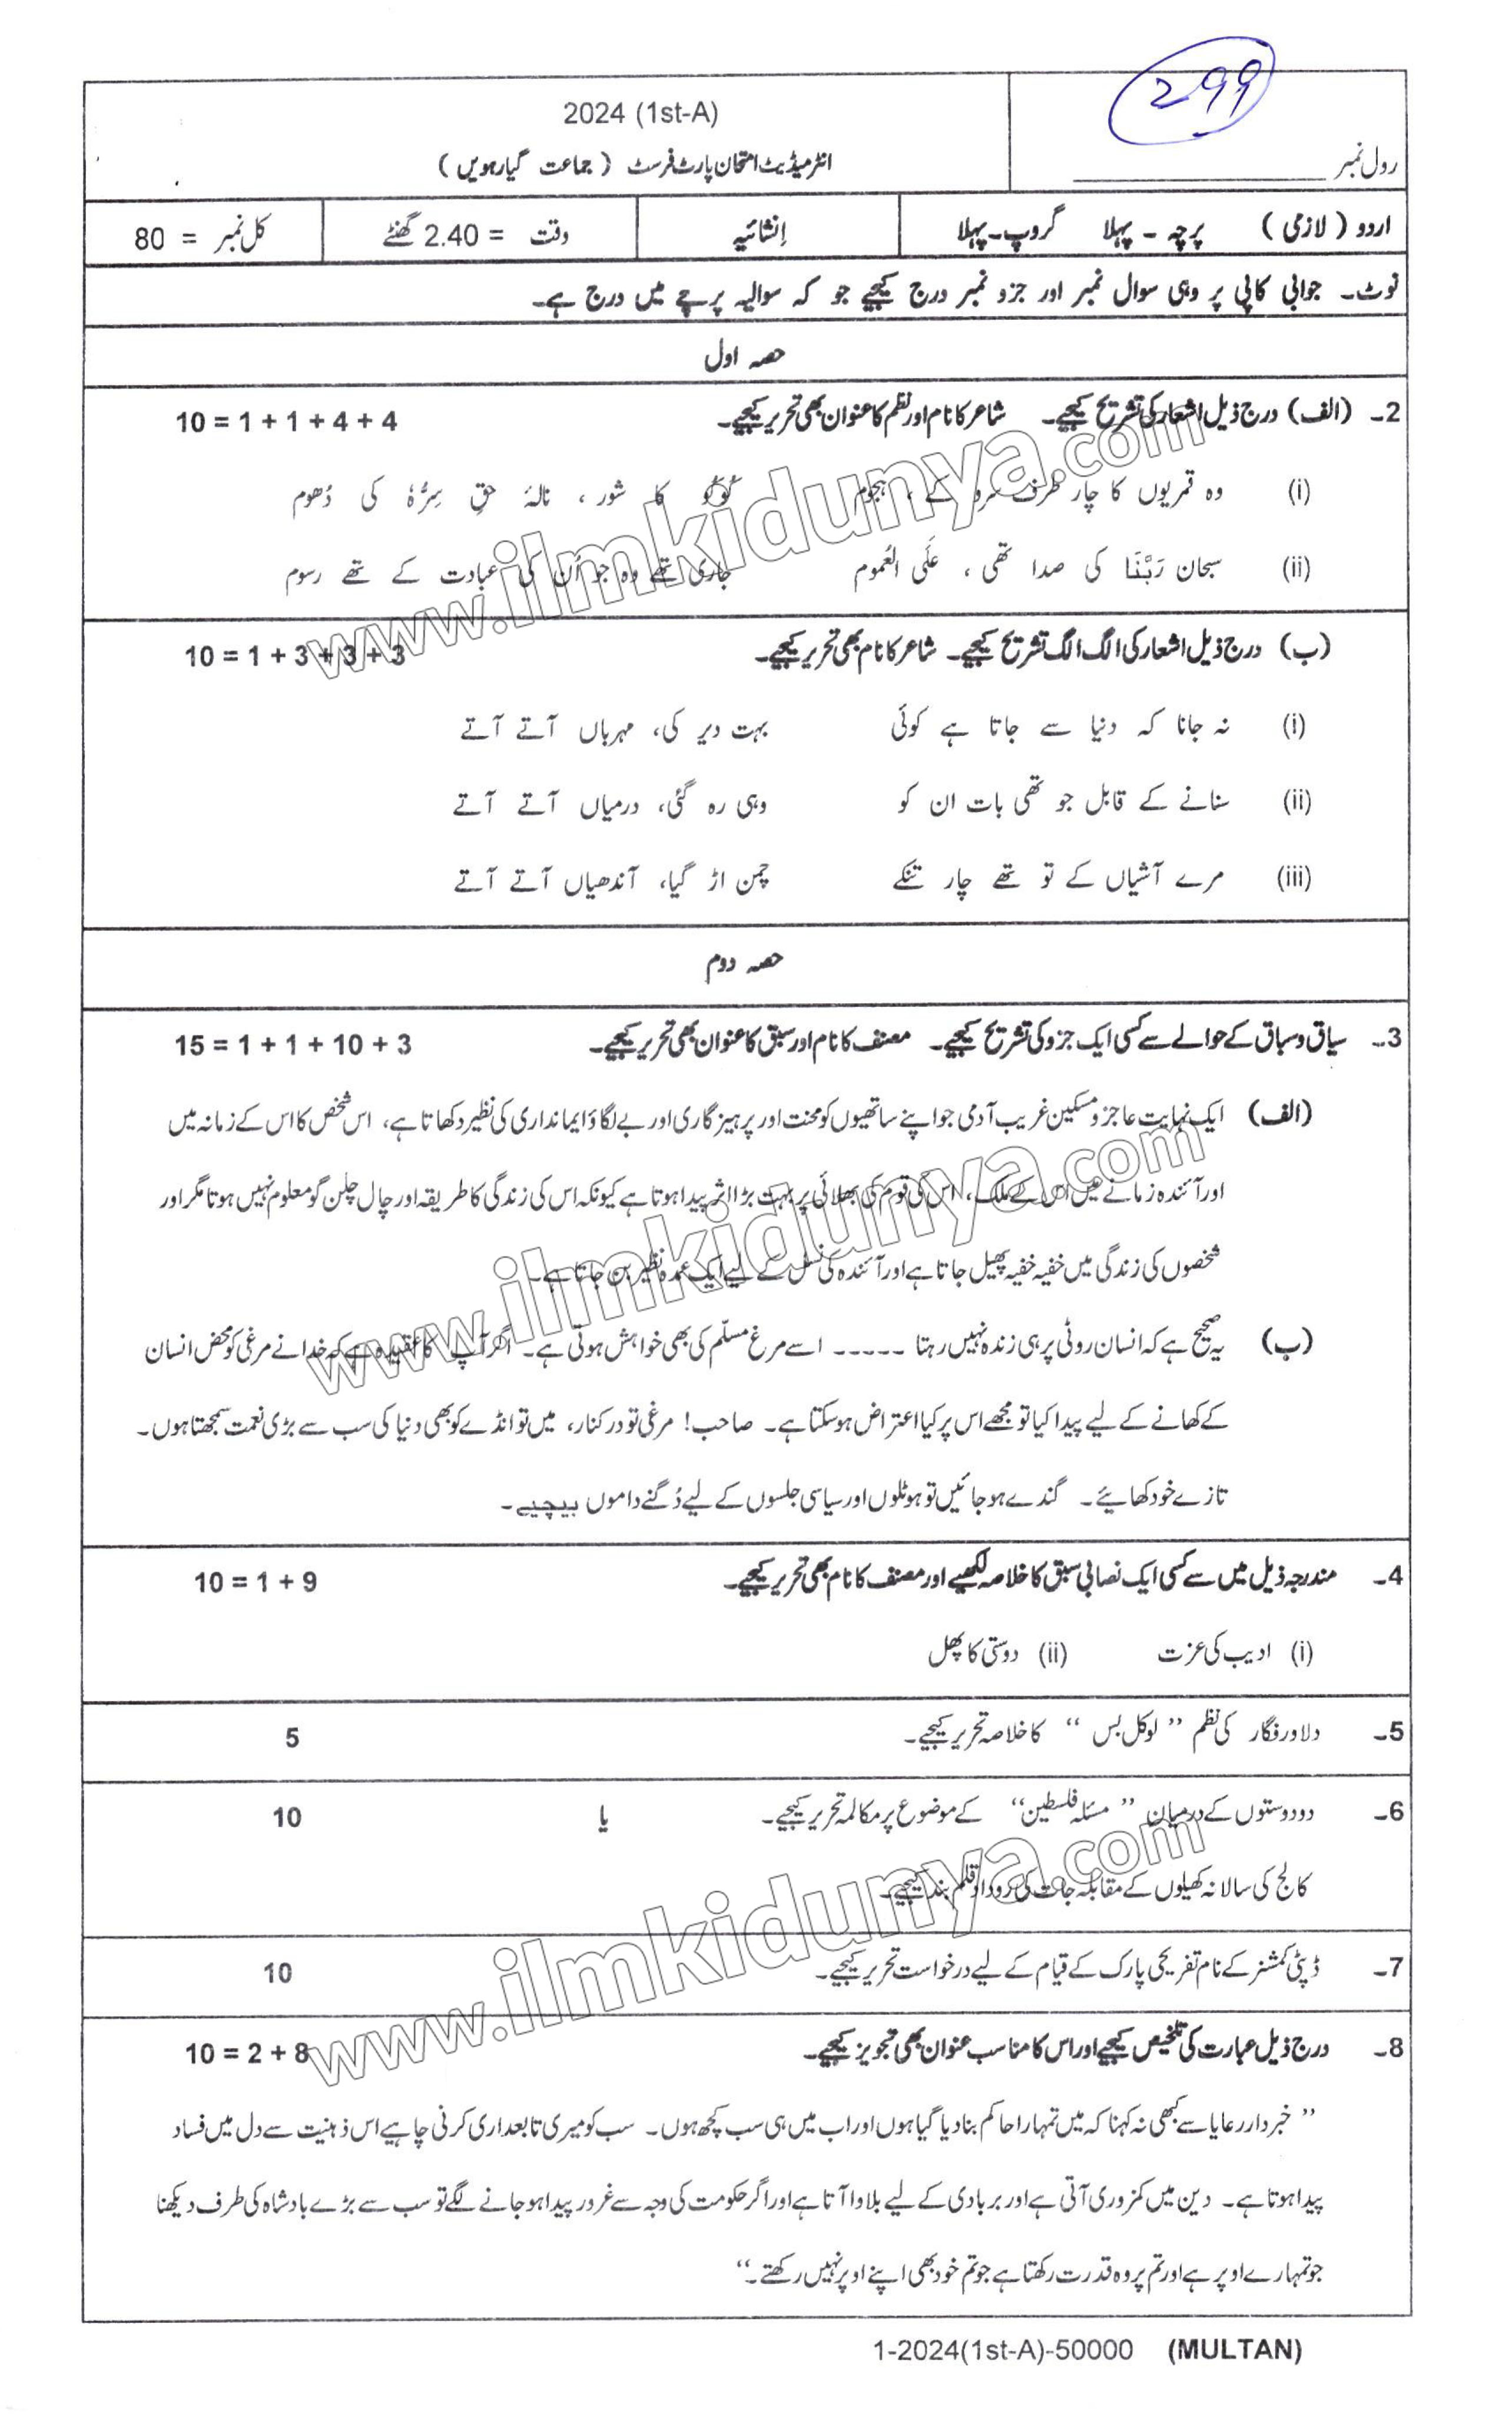 299
2024 (1st-A)
رول نمبر
انٹرمیڈیٹ امتحان پارٹ فرسٹ ( جماعت گیارہویں )
اردو ( لازمی ) پرچہ - پہلا گروپ - پہلا اِنشائیہ وقت = 2.40 گھنٹے کل نمبر = 80
نوٹ۔ جوابی کاپی پر وہی سوال نمبر اور جزو نمبر درج کیجیے جو کہ سوالیہ پرچے میں درج ہے۔
حصہ اول
2۔ (الف) درج ذیل اشعار کی تشریح کیجیے۔ شاعر کا نام اور نظم کا عنوان بھی تحریر کیجیے۔ 10 = 1 + 1 + 4 + 4
(i) وہ قمریوں کا چار طرف سرو کے ، ہجوم کُوکُو کا شور ، نالۂ حقِ سِرُّہٗ کی دُھوم
(ii) سبحان رَبَّنَا کی صدا تھی ، عَلَی العُموم جاری تھے وہ جو اُن کی عبادت کے تھے رسوم
(ب) درج ذیل اشعار کی الگ الگ تشریح کیجیے۔ شاعر کا نام بھی تحریر کیجیے۔ 10 = 1 + 3 + 3 + 3
(i) نہ جانا کہ دنیا سے جاتا ہے کوئی بہت دیر کی، مہرباں آتے آتے
(ii) سنانے کے قابل جو تھی بات ان کو وہی رہ گئی، درمیاں آتے آتے
(iii) مرے آشیاں کے تو تھے چار تنکے چمن اڑ گیا، آندھیاں آتے آتے
حصہ دوم
3۔ سیاق و سباق کے حوالے سے کسی ایک جزو کی تشریح کیجیے۔ مصنف کا نام اور سبق کا عنوان بھی تحریر کیجیے۔ 15 = 1 + 1 + 10 + 3
(الف) ایک نہایت عاجز و مسکین غریب آدمی جو اپنے ساتھیوں کو محنت اور پرہیز گاری اور بے لگاؤ ایمانداری کی نظیر دکھاتا ہے، اس شخص کا اس کے زمانہ میں
اور آئندہ زمانے میں اس کے ملک، اس کی قوم کی بھلائی پر بہت بڑا اثر پیدا ہوتا ہے کیونکہ اس کی زندگی کا طریقہ اور چال چلن گو معلوم نہیں ہوتا مگر اور
شخصوں کی زندگی میں خفیہ خفیہ پھیل جاتا ہے اور آئندہ کی نسل کے لیے ایک عمدہ نظیر بن جاتا ہے۔
(ب) یہ صحیح ہے کہ انسان روٹی پر ہی زندہ نہیں رہتا ----- اسے مرغ مسلّم کی بھی خواہش ہوتی ہے۔ اگر آپ کا عقیدہ ہے کہ خدا نے مرغی کو محض انسان
کے کھانے کے لیے پیدا کیا تو مجھے اس پر کیا اعتراض ہو سکتا ہے۔ صاحب! مرغی تو درکنار، میں تو انڈے کو بھی دنیا کی سب سے بڑی نعمت سمجھتا ہوں۔
تازے خود کھائیے۔ گندے ہو جائیں تو ہوٹلوں اور سیاسی جلسوں کے لیے دُگنے داموں بیچیے۔
4۔ مندرجہ ذیل میں سے کسی ایک نصابی سبق کا خلاصہ لکھیے اور مصنف کا نام بھی تحریر کیجیے۔ 10 = 1 + 9
(i) ادیب کی عزت (ii) دوستی کا پھل
5۔ دلاور فگار کی نظم ’’ لوکل بس ‘‘ کا خلاصہ تحریر کیجیے۔ 5
6۔ دو دوستوں کے درمیان ’’ مسئلہ فلسطین‘‘ کے موضوع پر مکالمہ تحریر کیجیے۔ یا 10
کالج کی سالانہ کھیلوں کے مقابلہ جات کی روداد قلم بند کیجیے۔
7۔ ڈپٹی کمشنر کے نام تفریحی پارک کے قیام کے لیے درخواست تحریر کیجیے۔ 10
8۔ درج ذیل عبارت کی تلخیص کیجیے اور اس کا مناسب عنوان بھی تجویز کیجیے۔ 10 = 2 + 8
’’ خبردار رعایا سے کبھی نہ کہنا کہ میں تمہارا حاکم بنا دیا گیا ہوں اور اب میں ہی سب کچھ ہوں۔ سب کو میری تابعداری کرنی چاہیے اس ذہنیت سے دل میں فساد
پیدا ہوتا ہے۔ دین میں کمزوری آتی ہے اور بربادی کے لیے بلاوا آتا ہے اور اگر حکومت کی وجہ سے غرور پیدا ہو جانے لگے تو سب سے بڑے بادشاہ کی طرف دیکھنا
جو تمہارے اوپر ہے اور تم پر وہ قدرت رکھتا ہے جو تم خود بھی اپنے اوپر نہیں رکھتے۔‘‘
1-2024(1st-A)-50000 (MULTAN)
www.ilmkidunya.com
www.ilmkidunya.com
www.ilmkidunya.com